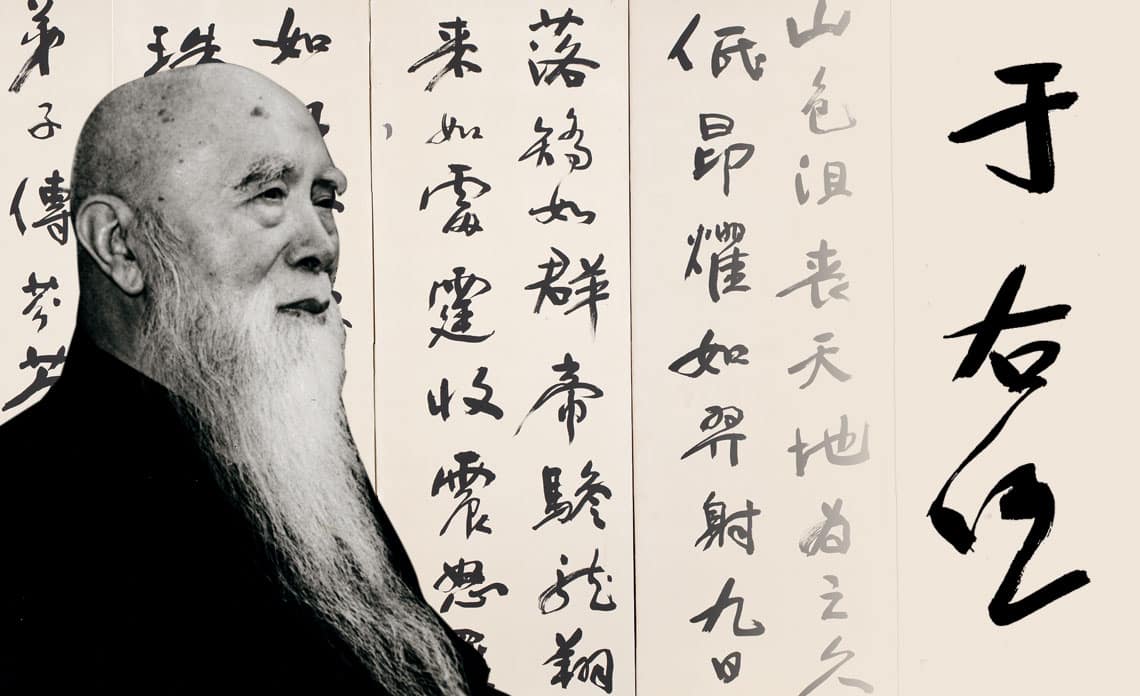 于右任
山色沮丧天地为之久
低昂耀如羿射九日
落矯如群帝驂龍翔
来如雷霆收震怒
如
珠
弟子傳芬芳